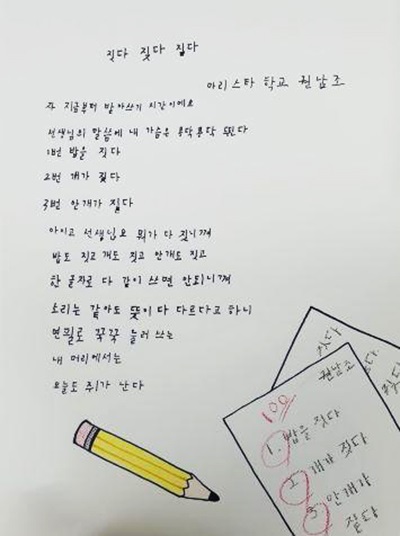 짓다 짖다 짙다
아리스타 학교 권남조
자 지금부터 받아쓰기 시간이에요
선생님의 말씀에 내 가슴은 콩닥콩닥 뛴다
1번 밥을 짓다
2번 개가 짖다
3번 안개가 짙다
아이고 선생님요 뭐가 다 짓니껴
밥도 짓고 개도 짖고 안개도 짓고
한 글자로 다 같이 쓰면 안되니껴
소리는 같아도 뜻이 다 다르다고 하니
연필로 꾹꾹 눌러 쓰는
내 머리에서는
오늘도 쥐가 난다
권남조
100
1. 밥을 짓다
2. 개가 짖다
3. 안개가
짙다